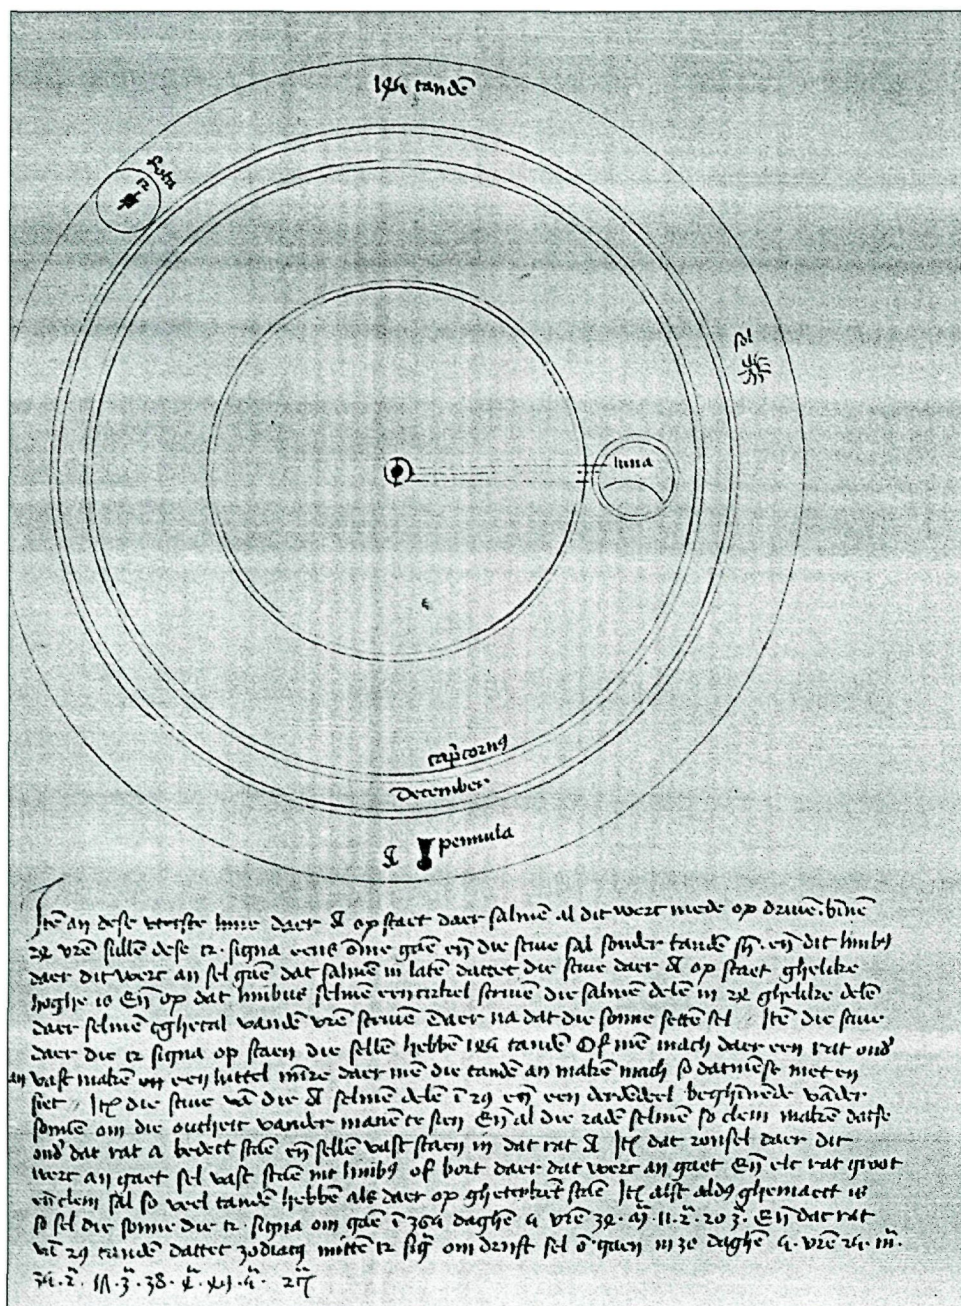 145 tandē
Rota
12
sol
luna
capᵢcornꝯ
December
A pennula
Itē an dese verste linie daer A op staet daer salmē al dit werc mede op drivē. binē
24 vrē sullē dese 12 signa eens ōme gaē eñ die scive sal sonder tandē sȳ. eñ dit limbꝯ
daer dit werc an sel gaē dat salmē in latē dattet die scive daer A op staet ghelike
hoghe is Eñ op dat limbus selmē een cirkel scrivē die salmē delē in 24 ghelike delē
daer selmē tghetal vandē vrē scrivē daer na dat die sonne settē sel Itē die scive
daer die 12 signa op staen die sellē hebbē 145 tandē Of mē mach daer een rat ond'
an vast makē een luttel mīre daer mē die tandē an makē mach so datmēs niet en
siet Itē die scive vā die A selmē delē ī 29 eñ een derdedeel beghīnēde vāder
sonnē om die outheit vander manē te sien Eñ al die radē selmē so clein makē datse
ond' dat rat A bedect staē eñ sellē vast staen in dat rat A Itē dat ronsel daer dit
werc an gaet sel vast staē int limbꝯ of bort daer dat werc an gaet Eñ elc rat groot
eñ clein sal so veel tandē hebbē als daer op gheteykēt staē Itē alst aldꝯ ghemaect is
so sel die sonne die 12 signa om gaē ī 365 daghē 5 vrē 34 m̄ 11 2̄ 20 3̄ Eñ dat rat
vā 29 tandē dattet zodiacꝯ mittē 12 sig̃ om drift sel ō gaen in daghē 5 vrē 25 m̄
38